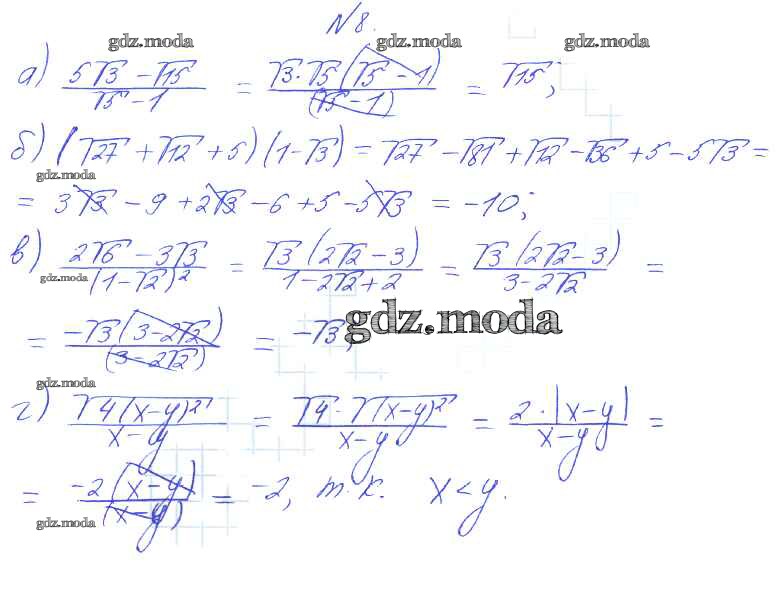 №8.
gdz.moda gdz.moda gdz.moda
а) (5√3 - √15)/(√5 - 1) = (√3·√5(√5 - 1))/((√5 - 1)) = √15;
б) (√27 + √12 + 5)(1 - √3) = √27 - √81 + √12 - √36 + 5 - 5√3 =
gdz.moda
= 3√3 - 9 + 2√3 - 6 + 5 - 5√3 = -10;
в) (2√6 - 3√3)/(1 - √2)² = (√3(2√2 - 3))/(1 - 2√2 + 2) = (√3(2√2 - 3))/(3 - 2√2) =
gdz.moda
= (-√3(3 - 2√2))/((3 - 2√2)) = -√3;
gdz.moda
gdz.moda
г) √(4(x-y)²)/(x-y) = (√4·√((x-y)²))/(x-y) = (2·|x-y|)/(x-y) =
= (-2(x-y))/((x-y)) = -2, т.к. x<y.
gdz.moda